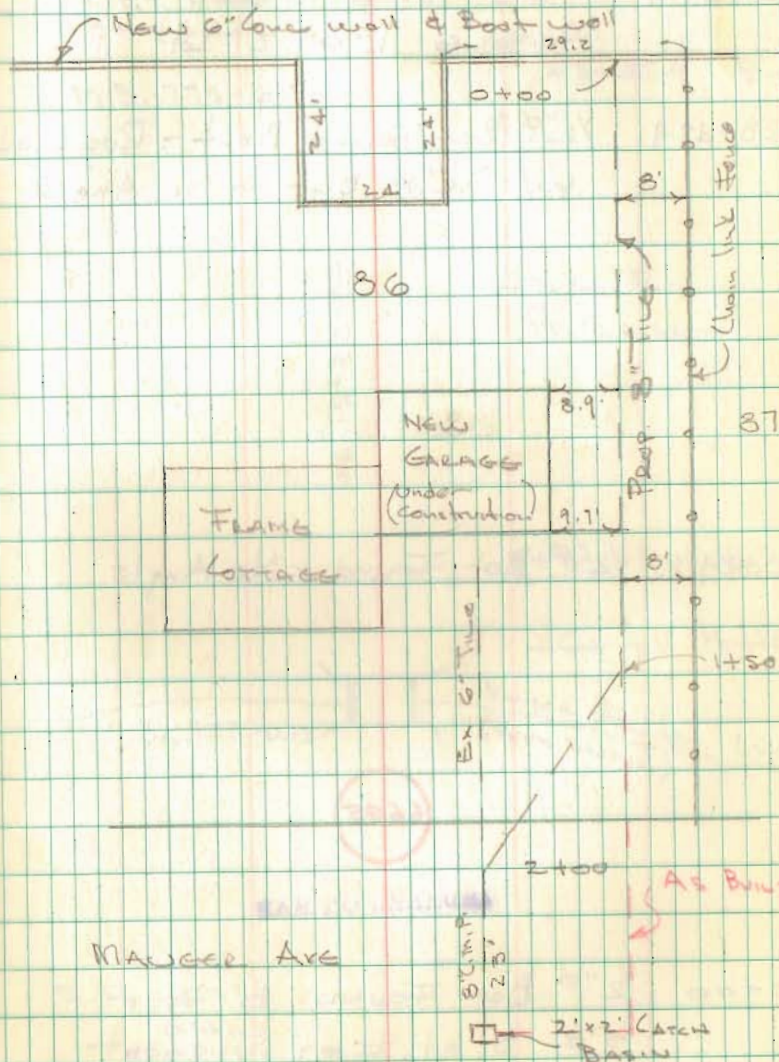 New 6" Conc wall & Boat well
29.2
0+00
24'
24'
24
8'
Chain link Fence
86
Prop. 8" Tile
New
Garage
(Under
Construction)
8.9'
9.7'
87
Frame
Cottage
8'
Ex 6" Tile
1+50
2+00
As Buil
8" C.M.P.
23'
Ave
2'x2' Catch
Basin